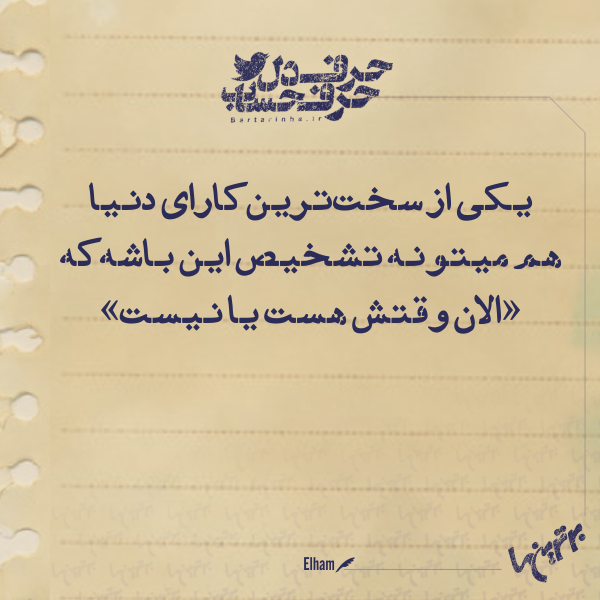 حرف دل
حرف حساب
Bartarinha.ir
یکی از سخت‌ترین کارای دنیا
هم میتونه تشخیص این باشه که
«الان وقتش هست یا نیست»
Elham
برترین‌ها